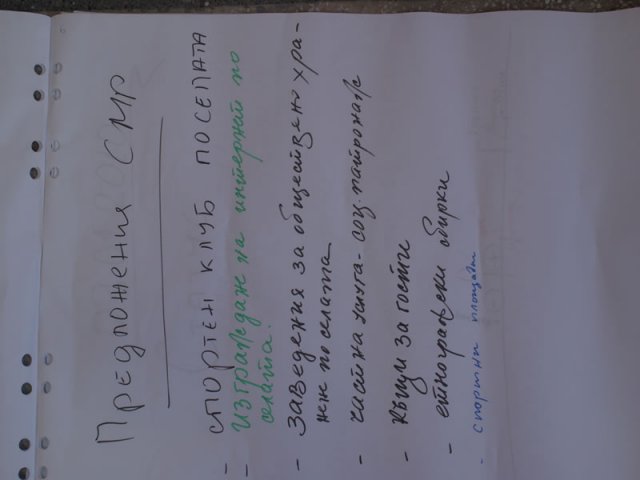 Предложения СМР
- СПОРТЕН КЛУБ ПО СЕЛАТА
- изграждане на интернет по
селата.
- Заведения за обществено хра-
не по селата
- частна - соц. патронаж
- къщи за гости
- етнографски сбирки
- спортни площадки